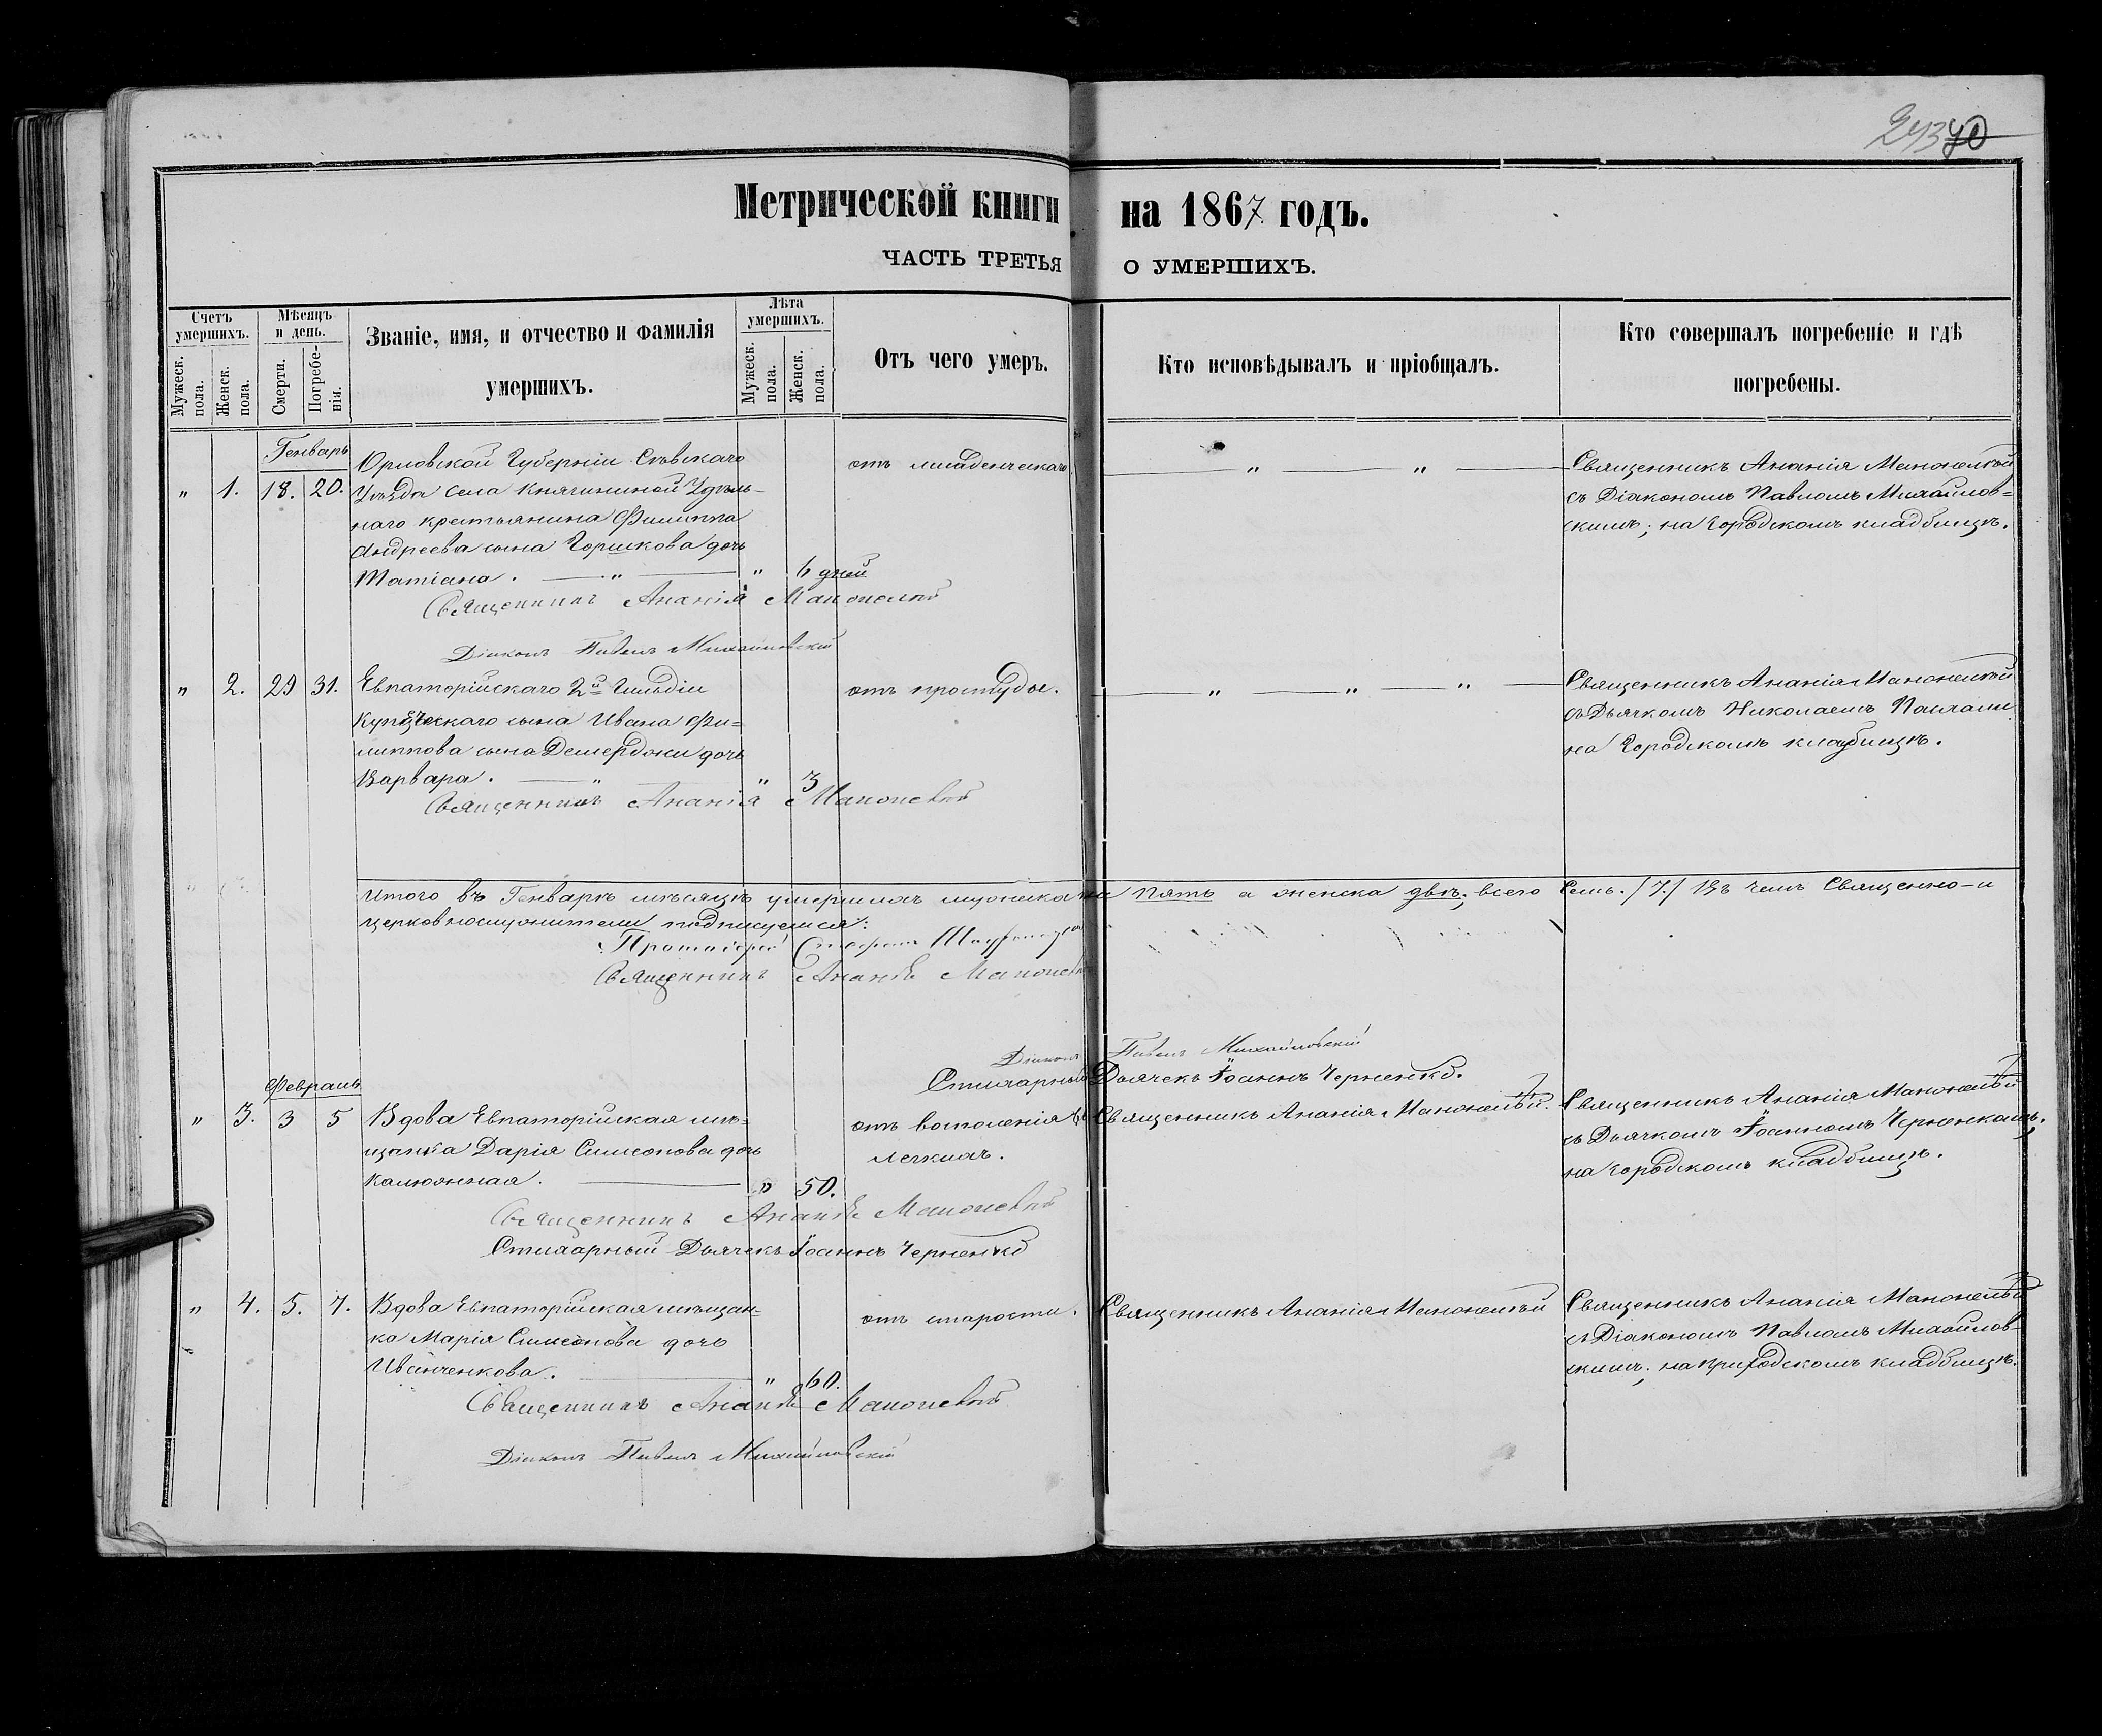 243 40
Метрической книги на 1867 годъ.
ЧАСТЬ ТРЕТЬЯ О УМЕРШИХЪ.
Счетъ умершихъ.
Мужеск. пола.
Женск. пола.
Мѣсяцъ и день.
Смерти.
Погребенія.
Званіе, имя, и отчество и фамилія
умершихъ.
Лѣта умершихъ.
Мужеск. пола.
Женск. пола.
Отъ чего умеръ.
Кто исповѣдывалъ и пріобщалъ.
Кто совершалъ погребеніе и гдѣ
погребены.
Генварь
" 1. 18. 20.
Орловской Губерніи Сѣвскаго
Уѣзда села Княгининой Удѣль-
наго крестьянина Филиппа
Андреева сына Горшкова дочь
Татіана. " " 6 дней
отъ младенческаго
" "
Священникъ Ананія
съ Діакономъ Павломъ Михайлов=
скимъ; на городскомъ кладбищѣ.
Священникъ Ананія
Діаконъ Павелъ Михайловскій
" 2. 29 31.
Евпаторійскаго 2й Гильдіи
Купеческаго сына Ивана Фи=
липпова сына Демерджи дочь
Варвара. " " 3
отъ простуды.
" " "
Священникъ Ананія
съ Дьячкомъ Николаемъ
на Городскомъ кладбищѣ.
Священникъ Ананія
Итого въ Генварѣ мѣсяцѣ умершихъ мужеска пять а женска двѣ; всего семь. /7./ Въ чемъ Священно-и
церковнослужители подписуемся:
Протоіерей
Священникъ Ананія
Діаконъ Павелъ Михайловскій
Стихарный Дьячекъ Іоаннъ Черненко.
Февраль
" 3. 3 5
Вдова Евпаторійская мѣ=
щанка Дарія Симеонова дочь
Калюжная. " 50.
отъ воспаленія въ
легкихъ.
Священникъ Ананія
Священникъ Ананія
съ Дьячкомъ Іоанномъ Черненкомъ;
на городскомъ кладбищѣ.
Священникъ Ананія
Стихарный Дьячекъ Іоаннъ Черненко
" 4. 5. 7.
Вдова Евпаторійская мѣщан=
ка Марія Симеонова дочь
Иванченкова. " 60.
отъ старости.
Священникъ Ананія
Священникъ Ананія
съ Діакономъ Павломъ Михайлов-
скимъ; на кладбищѣ.
Священникъ Ананія
Діаконъ Павелъ Михайловскій